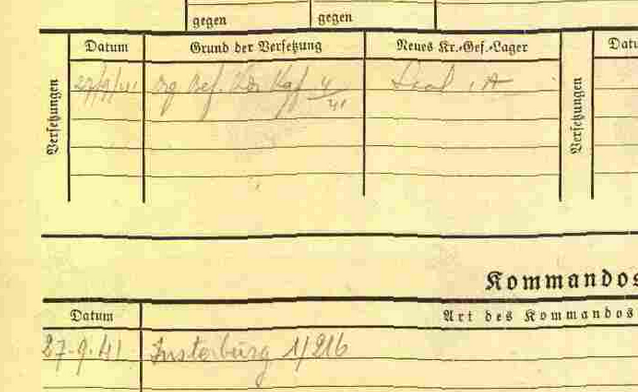 gegen gegen
Versetzungen Datum Grund der Versetzung Neues Kr.-Gef.-Lager Versetzungen Datu
27/9/41 Bef. Kdr Kgf 4/41 A
Kommandos
Datum Art des Kommandos
27.9.41 Insterburg 1/216